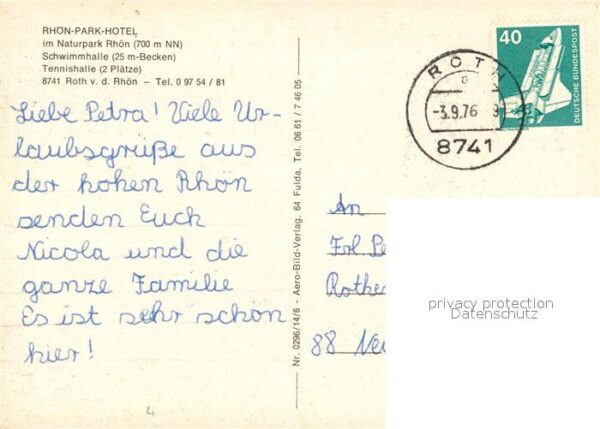 RHÖN-PARK-HOTEL
im Naturpark Rhön (700 m NN)
Schwimmhalle (25 m-Becken)
Tennishalle (2 Plätze)
8741 Roth v. d. Rhön – Tel. 0 97 54 / 81
Liebe Petra! Viele Ur-
laubsgrüße aus
der hohen Rhön
senden Euch
Nicola und die
ganze Familie
Es ist sehr schön
hier!
Nr. 0296/14/6 - Aero-Bild-Verlag. 64 Fulda, Tel. 06 61 / 7 46 05
40
DEUTSCHE BUNDESPOST
ROTH
-3.9.76
8741
An
Frl Pe
Rothe
88
privacy protection
Datenschutz